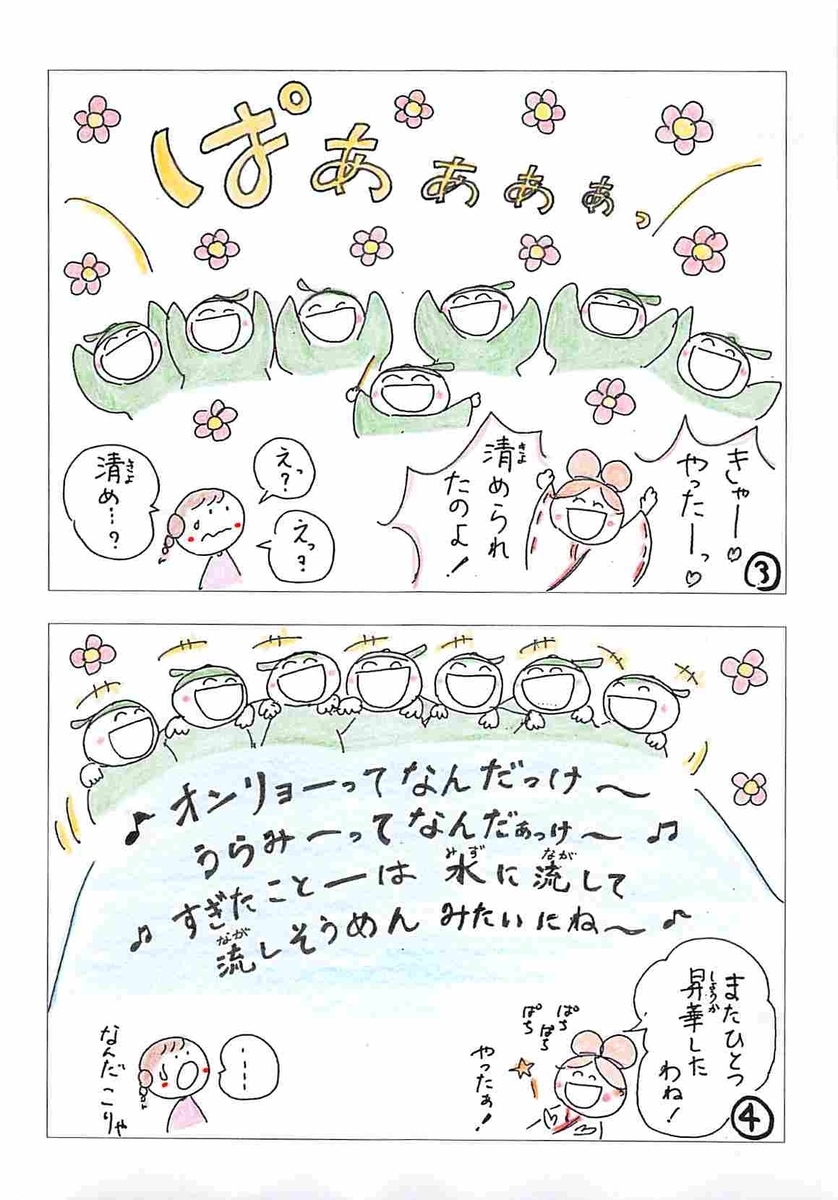 ぱぁぁぁぁっ
きゃー♡
やったーっ♡
清められ
たのよ!
きよ
えっ?
えっ?
清め…?
きよ
③
♪オンリョーってなんだっけ〜
うらみーってなんだぁっけ〜♫
すぎたことーは 水に流して
みず
なが
♪流しそうめん みたいにね〜♪
なが
またひとつ
昇華した
しょうか
わね!
ぱち
ぱち
ぱち
やったぁ!
……
なんだこりゃ
④